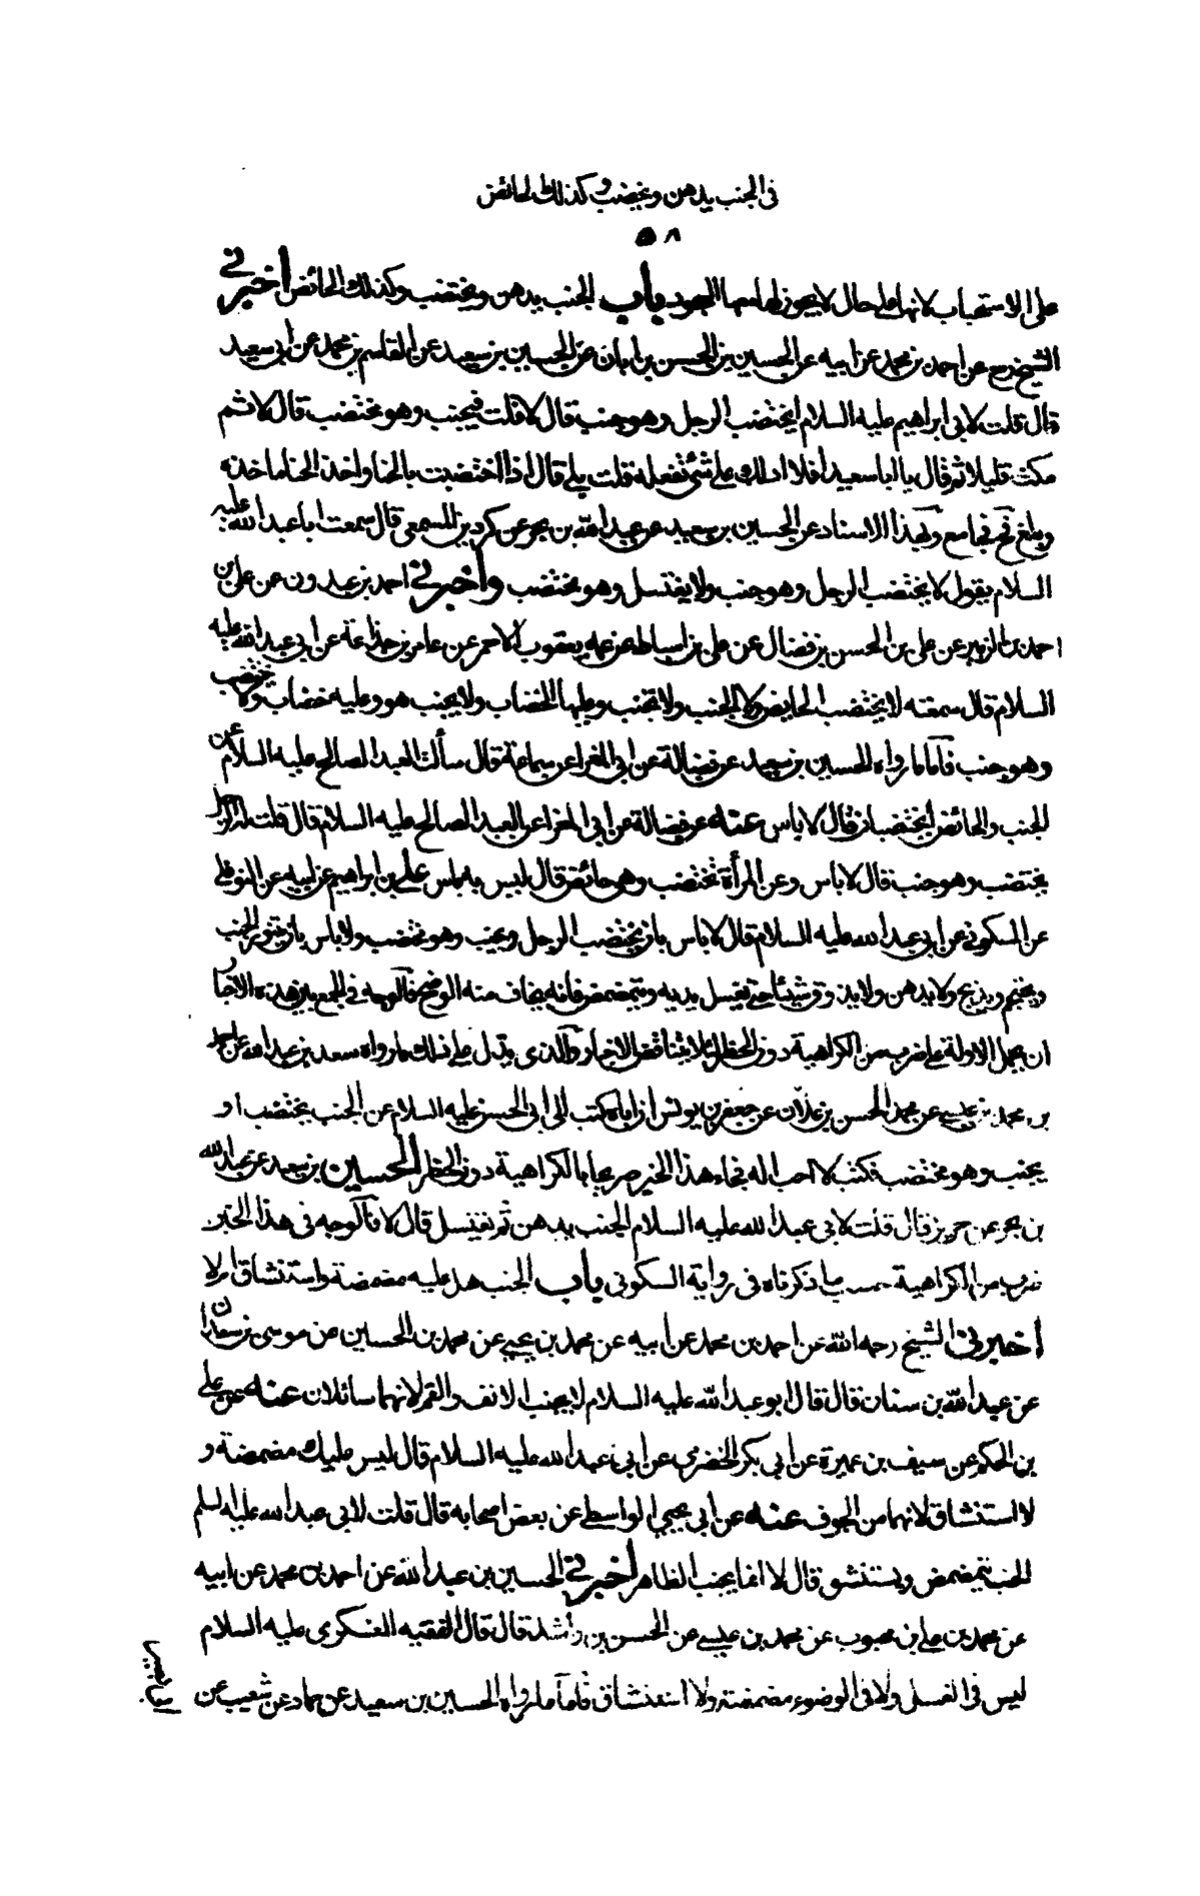 فى الجنب يدهن ويختضب وكذلك الحائض
٥٨
على الاستحباب لانها على حال لا يجوز لها معها السجود باب الجنب يدهن ويختضب وكذلك الحائض اخبرني
الشيخ عن احمد بن محمد عن ابيه عن الحسين بن الحسن بن ابان عن الحسين بن سعيد عن القاسم بن محمد عن ابى سعيد
قال قلت لابى ابراهيم عليه السلام ايختضب الرجل وهو جنب قال لا قلت فيجنب وهو مختضب قال لا ثم
مكث قليلا ثم قال يا ابا سعيد افلا ادلك على شئ تفعله قلت بلى قال اذا اختضبت بالحنا واخذ الحنا ماخذه
وبلغ فحينئذ فجامع وبهذا الاسناد عن الحسين بن سعيد عن عبد الله بن بحر عن كردين المسمعى قال سمعت ابا عبد الله عليه
السلام يقول لا يختضب الرجل وهو جنب ولا يغتسل وهو مختضب واخبرني احمد بن عبدون عن على بن
احمد بن الزبير عن على بن الحسن بن فضال عن على بن اسباط عن عمه يعقوب الاحمر عن عامر بن جذاعة عن ابى عبد الله عليه
السلام قال سمعته لا يختضب الحايض ولا الجنب ولا تجنب وعليها الخضاب ولا يجنب هو وعليه خضاب ولا يختضب
وهو جنب فاما ما رواه الحسين بن سعيد عن فضالة عن ابى المغرا عن سماعة قال سألت العبد الصالح عليه السلام عن
الجنب والحائض ايختضبان قال لا باس عنه عن فضالة عن ابى المغرا عن العبد الصالح عليه السلام قال قلت له الرجل
يختضب وهو جنب قال لا باس وعن المرأة تختضب وهى حائض قال ليس به باس على بن ابراهيم عن ابيه عن النوفلى
عن السكونى عن ابى عبد الله عليه السلام قال لا باس بان يختضب الرجل ويجنب وهو مختضب ولا باس بان يتنور الجنب
ويحتجم ويذبح ولا يدهن ولا يذوق شيئا حتى يغسل يديه ويتمضمض فانه يخاف منه الوضح فالوجه فى الجمع بين هذه الاخبار
ان نحمل الاولة على ضرب من الكراهية دون الحظر لئلا يتناقض الاخبار والذى يدل على ذلك ما رواه سعد بن عبد الله عن احمد
بن محمد بن عيسى عن محمد بن الحسن بن علان عن جعفر بن يونس ان اباه كتب الى ابى الحسن عليه السلام عن الجنب يختضب او
يجنب وهو مختضب فكتب لا احب له فجاء هذا الخبر صريحا بالكراهية دون الحظر الحسين بن سعيد عن عبد الله
بن بحر عن حريز قال قلت لابى عبد الله عليه السلام الجنب يدهن ثم يغتسل قال لا فالوجه فى هذا الخبر
ضرب من الكراهية حسب ما ذكرناه فى رواية السكونى باب الجنب هل عليه مضمضة واستنشاق ام لا
اخبرنى الشيخ رحمه الله عن احمد بن محمد عن ابيه عن محمد بن يحيى عن محمد بن الحسين عن موسى بن سعدان
عن عبد الله بن سنان قال قال ابو عبد الله عليه السلام لا يجنب الانف والفم لانهما سائلان عنه عن على
بن الحكم عن سيف بن عميرة عن ابى بكر الحضرمى عن ابى عبد الله عليه السلام قال ليس عليك مضمضة و
لا استنشاق لانهما من الجوف عنه عن ابى يحيى الواسطى عن بعض اصحابه قال قلت لابى عبد الله عليه السلم
الجنب يتمضمض ويستنشق قال لا انما يجنب الظاهر اخبرني الحسين بن عبد الله عن احمد بن محمد عن ابيه
عن محمد بن على بن محبوب عن محمد بن عيسى عن الحسن بن راشد قال قال الفقيه العسكرى عليه السلام
ليس فى الغسل ولا فى الوضوء مضمضة ولا استنشاق فاما ما رواه الحسين بن سعيد عن حماد عن شعيب عن